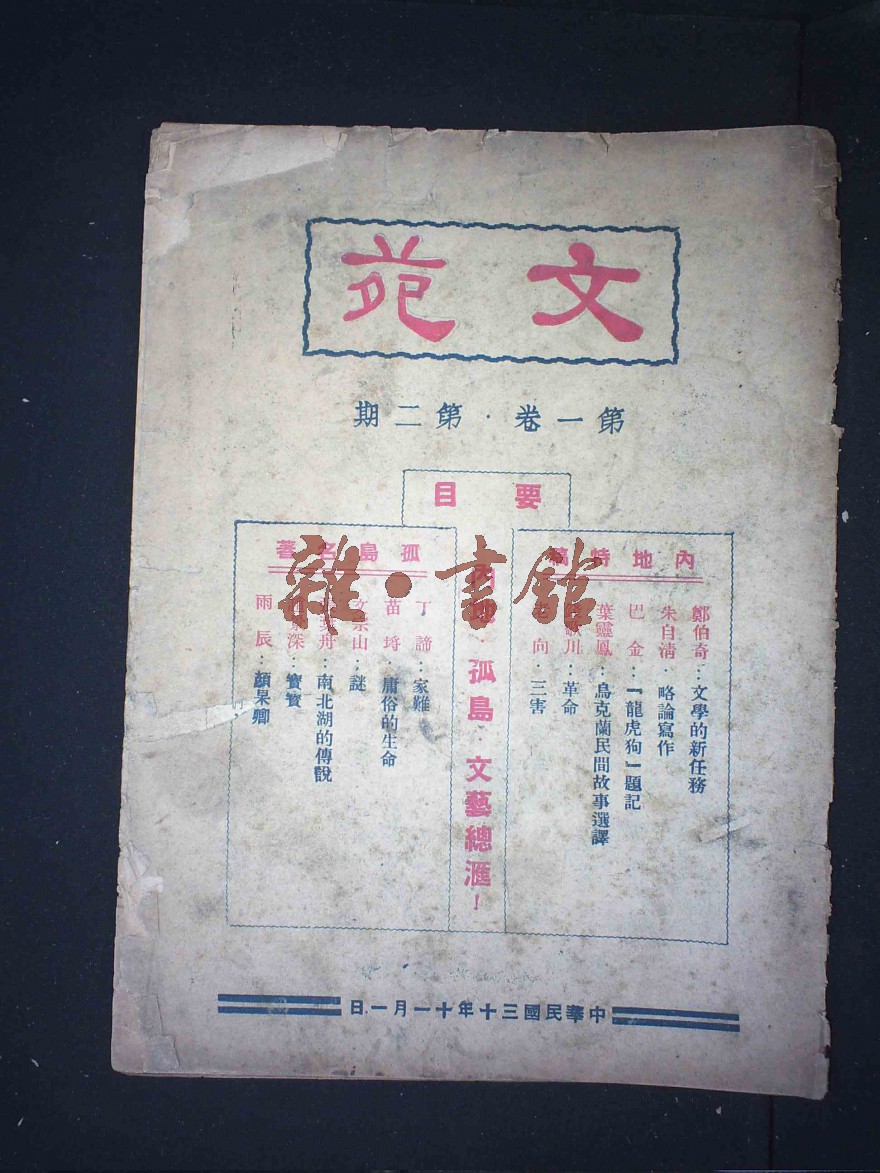 文苑
第一卷·第二期
要目
內地特稿
鄭伯奇：文學的新任務
朱自清：略論寫作
巴金：「龍虎狗」題記
葉靈鳳：烏克蘭民間故事選譯
川：革命
向：三害
內地·孤島·文藝總滙！
孤島名著
丁諦：家難
苗埒：庸俗的生命
宗山：謎
舟：南北湖的傳說
深：寶寶
雨辰：顏杲卿
雜·書館
中華民國三十年十一月一日